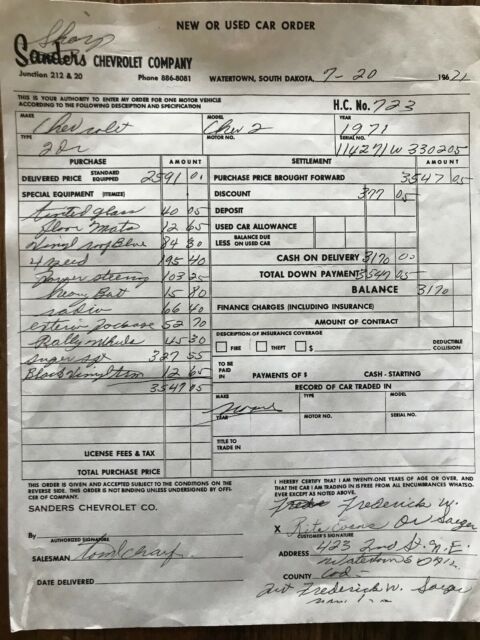 NEW OR USED CAR ORDER
Sharp
Sanders CHEVROLET COMPANY
Junction 212 & 20 Phone 886-8081 WATERTOWN, SOUTH DAKOTA, 7-20 196 71
THIS IS YOUR AUTHORITY TO ENTER MY ORDER FOR ONE MOTOR VEHICLE
ACCORDING TO THE FOLLOWING DESCRIPTION AND SPECIFICATION H.C. No. 723
MAKE MODEL YEAR
Chevrolet Chev 2 1971
TYPE MOTOR NO. SERIAL NO.
2Dr 114271W330205
PURCHASE AMOUNT SETTLEMENT AMOUNT
DELIVERED PRICE STANDARD EQUIPPED 2591 01 PURCHASE PRICE BROUGHT FORWARD 3547 05
SPECIAL EQUIPMENT (ITEMIZE) DISCOUNT 377 05
tinted glass 40 05 DEPOSIT
floor mats 12 65 USED CAR ALLOWANCE
vinyl top Blue 84 30 BALANCE DUE
LESS ON USED CAR
4 speed 195 40 CASH ON DELIVERY 3170 00
power steering 103 25 TOTAL DOWN PAYMENT 3547 05
heavy Bat 15 80 BALANCE 3170
radio 66 40 FINANCE CHARGES (INCLUDING INSURANCE)
52 70 AMOUNT OF CONTRACT
Rally wheels 45 30 DESCRIPTION OF INSURANCE COVERAGE
FIRE THEFT $ DEDUCTIBLE COLLISION
super spt 327 55 TO BE PAID IN PAYMENTS OF $ CASH - STARTING
Black vinyl trim 12 65
3547 05 RECORD OF CAR TRADED IN
MAKE TYPE MODEL
none
YEAR MOTOR NO. SERIAL NO.
TITLE TO TRADE IN
LICENSE FEES & TAX
TOTAL PURCHASE PRICE
THIS ORDER IS GIVEN AND ACCEPTED SUBJECT TO THE CONDITIONS ON THE
REVERSE SIDE. THIS ORDER IS NOT BINDING UNLESS UNDERSIGNED BY OFFI-
CER OF COMPANY.
I HEREBY CERTIFY THAT I AM TWENTY-ONE YEARS OF AGE OR OVER, AND
THAT THE CAR I AM TRADING IN IS FREE FROM ALL ENCUMBRANCES WHATSO-
EVER EXCEPT AS NOTED ABOVE.
SANDERS CHEVROLET CO.
Frederick W.
X Or Saeger
CUSTOMER'S SIGNATURE
By
AUTHORIZED SIGNATURE
ADDRESS 423 2nd St. N.E.
Watertown
SALESMAN
COUNTY Cod
DATE DELIVERED
Frederick W. Saeger